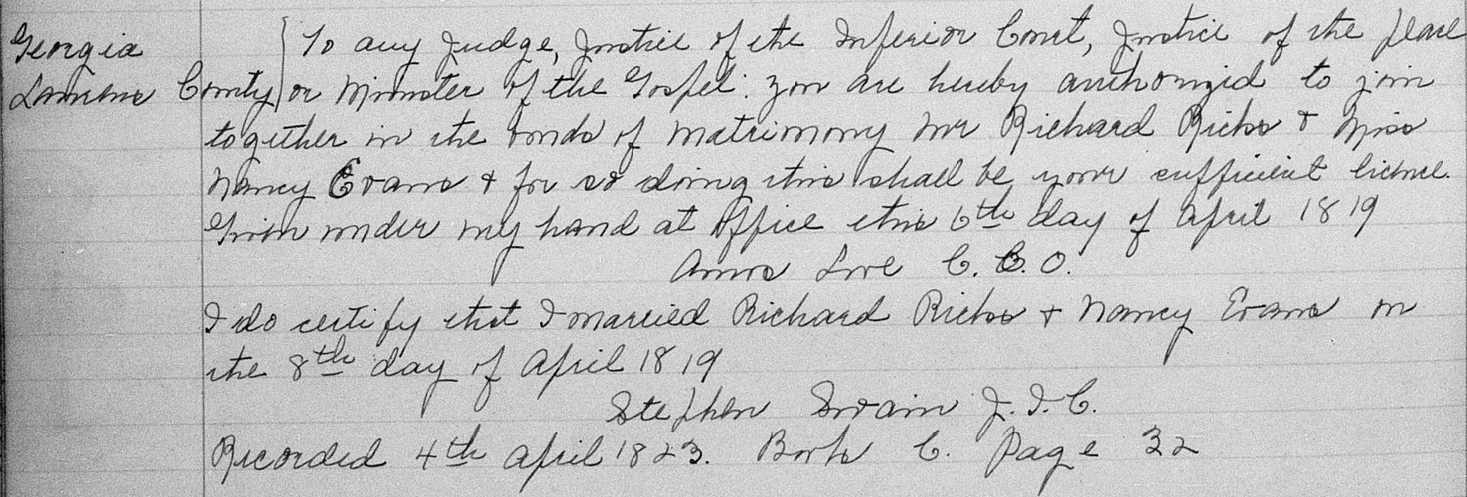 Georgia } To any Judge, Justice of the Inferior Court, Justice of the peace
Laurens County } or Minister of the Gospel: you are hereby authorized to join
together in the bonds of matrimony Mr Richard Ricks & Miss
Nancy Evans & for so doing this shall be your sufficient licence.
Given under my hand at office this 6th day of April 1819
Amos Love C. C. O.
I do certify that I married Richard Ricks & Nancy Evans on
the 8th day of April 1819
Stephen Swain J. I. C.
Recorded 4th April 1823. Book C. Page 32